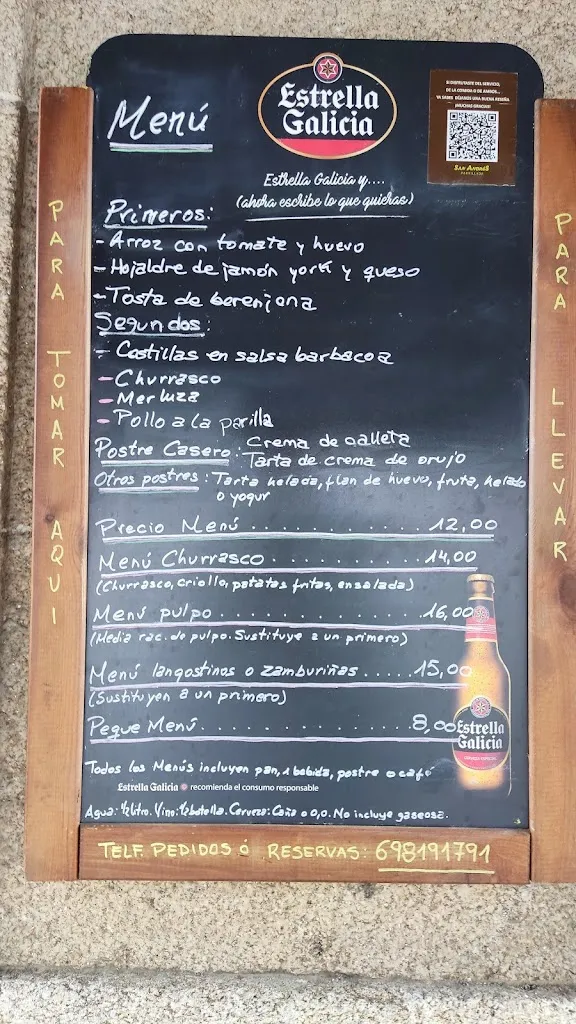 Menú
Estrella
Galicia
SI DISFRUTASTE DEL SERVICIO,
DE LA COMIDA O DE AMBOS...
YA SABES DÉJANOS UNA BUENA RESEÑA
¡MUCHAS GRACIAS!
SAN ANDRÉS
Estrella Galicia y....
(ahora escribe lo que quieras)
Primeros:
- Arroz con tomate y huevo
- Hojaldre de jamón york y queso
- Tosta de berenjena
Segundos:
- Costillas en salsa barbacoa
- Churrasco
- Merluza
- Pollo a la parilla
Postre Casero: Crema de galleta
Tarta de crema de orujo
Otros postres: Tarta helada, flan de huevo, fruta, helado
o yogur
Precio Menú . . . . . . . . . . . . . 12,00
Menú Churrasco . . . . . . . . . . . . 14,00
(Churrasco, criollo, patatas fritas, ensalada)
Menú pulpo . . . . . . . . . . . . . . 16,00
(Media rac. de pulpo. Sustituye a un primero)
Menú langostinos o zamburiñas . . . . . 15,00
(Sustituyen a un primero)
Peque Menú . . . . . . . . . . . . . . 8,00
Estrella
Galicia
Todos los Menús incluyen pan, 1 bebida, postre o café
Estrella Galicia recomienda el consumo responsable
Agua: 1/2 litro. Vino: 1/2 botella. Cerveza: Caña o 0,0. No incluye gaseosa.
TELF. PEDIDOS Ó RESERVAS: 698191791
PARA TOMAR AQUI
PARA LLEVAR